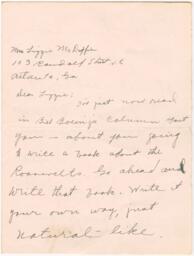 Mrs Lizzie McDuffie
Atlanta, Ga
Dear Lizzie:
I've just now read
in Column
you - about you going
to write a book about the
Roosevelts. Go ahead and
write that book. Write it
your own way, just
natural-like.